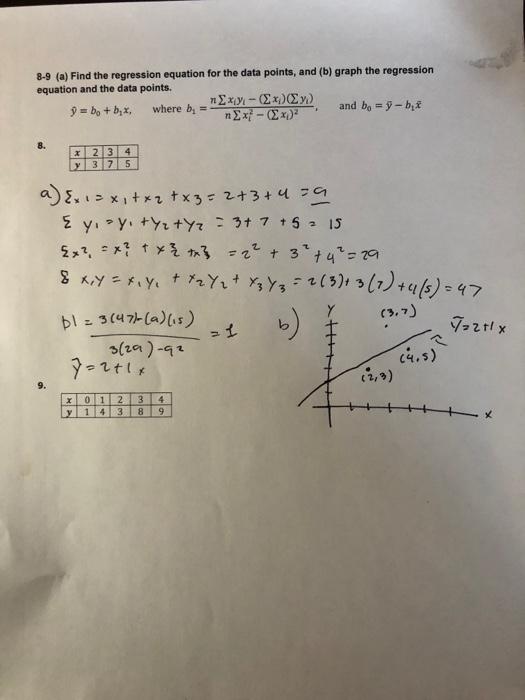 8-9 (a) Find the regression equation for the data points, and (b) graph the regression
equation and the data points.
ŷ = b₀ + b₁x, where b₁ = (nΣxᵢyᵢ − (Σxᵢ)(Σyᵢ)) / (nΣxᵢ² − (Σxᵢ)²), and b₀ = ȳ − b₁x̄
8.
x 2 3 4
y 3 7 5
a) Σx₁ = x₁ + x₂ + x₃ = 2+3+4 = 9
Σ y₁ = y₁ + y₂ + y₂ = 3+7+5 = 15
Σx²₁ = x²₁ + x²₂ + x²₃ = 2² + 3² + 4² = 29
Σ x,y = x₁y₁ + x₂y₂ + x₃y₃ = 2(3)+3(7)+4(5) = 47
b1 = (3(47)-(9)(15)) / (3(29)-92) = 1
ŷ = 2+1x
b)
y
(3,7)
ŷ = 2+1x
(4,5)
(2,3)
x
9.
x 0 1 2 3 4
y 1 4 3 8 9